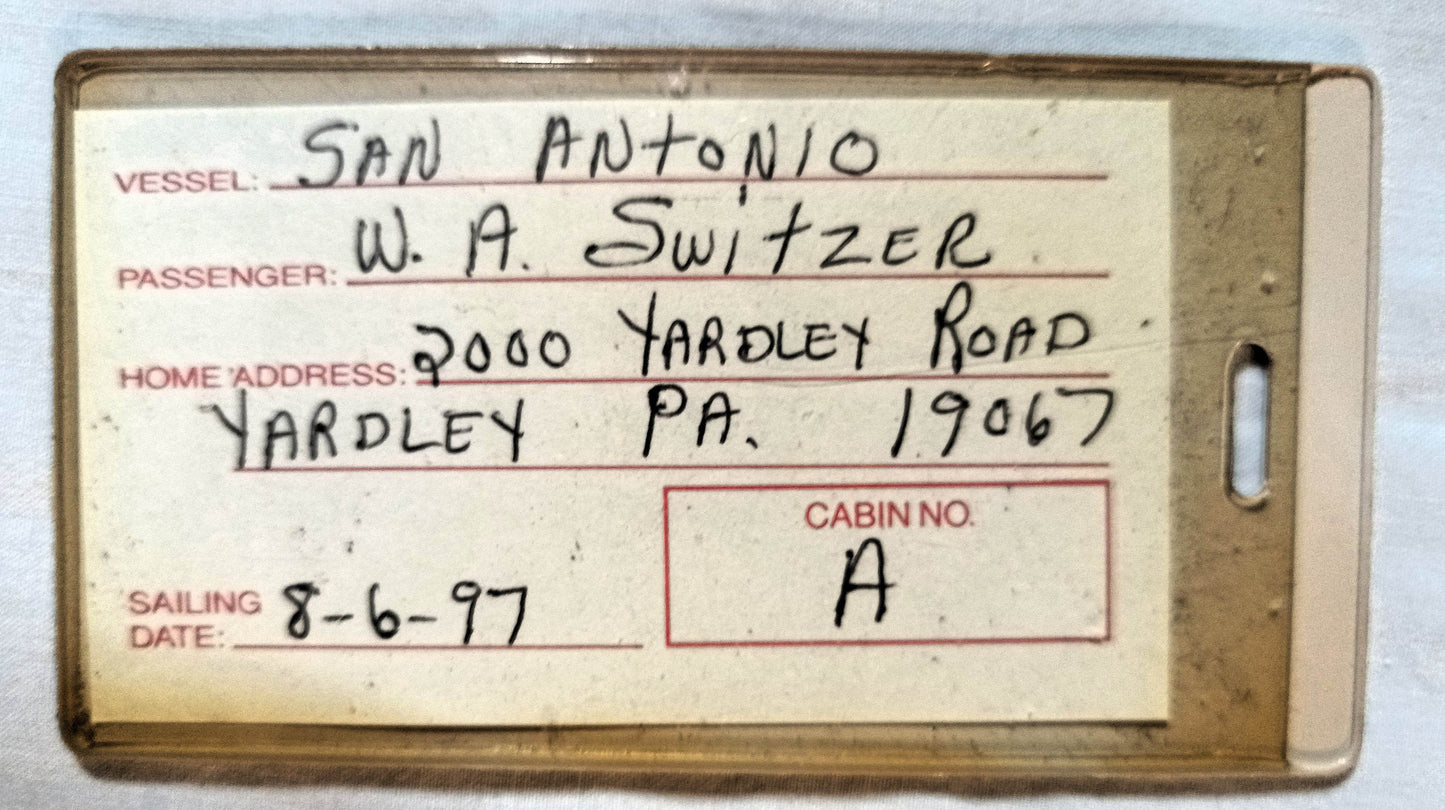 VESSEL: SAN ANTONIO
PASSENGER: W. A. SWITZER
HOME ADDRESS: 2000 YARDLEY ROAD
YARDLEY PA. 19067
CABIN NO.
A
SAILING
DATE: 8-6-97